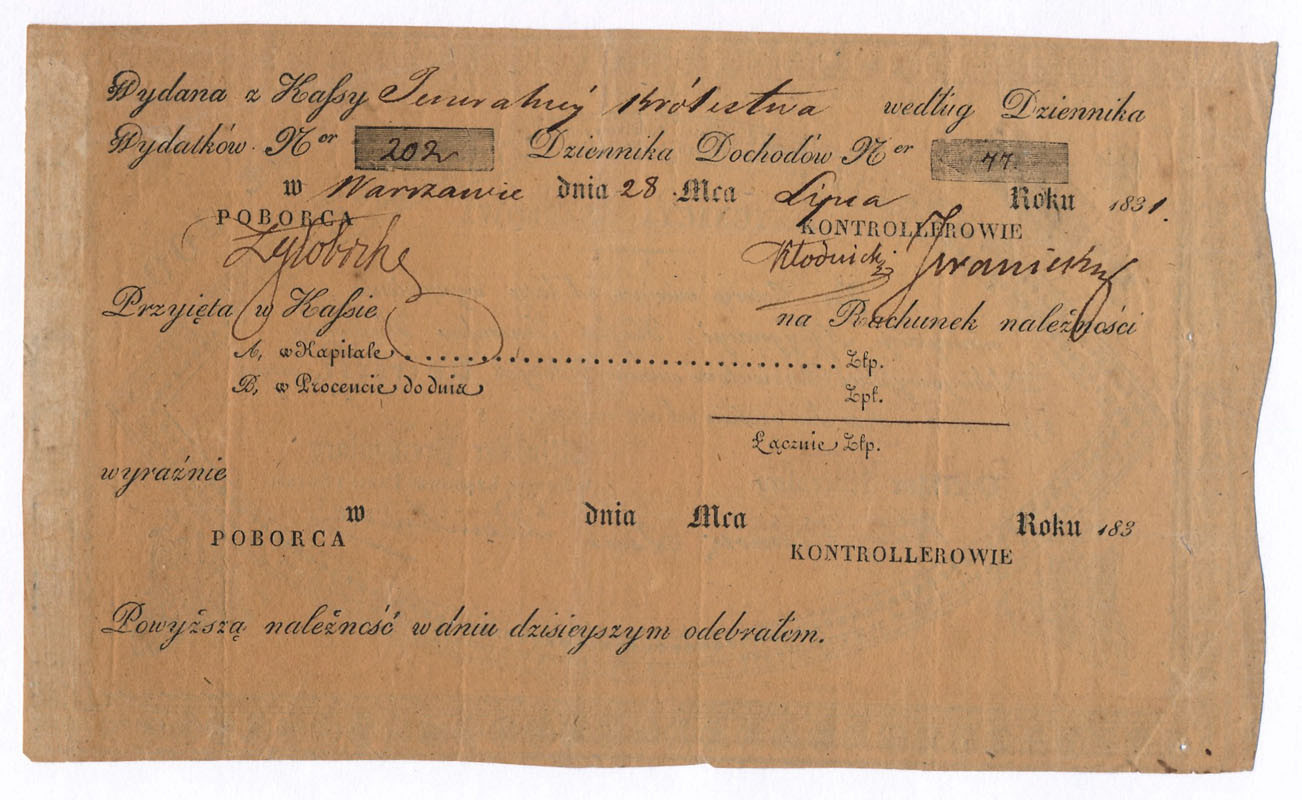 Wydana z Kaſsy Jeneralnéy Królestwa według Dziennika
Wydatków. Ner 202 Dziennika Dochodów Ner 77.
w Warszawie dnia 28 Mca Lipca Roku 1831.
POBORCA KONTROLLEROWIE
Kłodnicki
Przyięta w Kaſsie na Rachunek należności
A, w Kapitale .................................... Złp.
B, w Procencie do dnia Zpł.
Łącznie Złp.
wyraźnie
w dnia Mca Roku 183
POBORCA KONTROLLEROWIE
Powyższą należność w dniu dzisieyszym odebrałem.